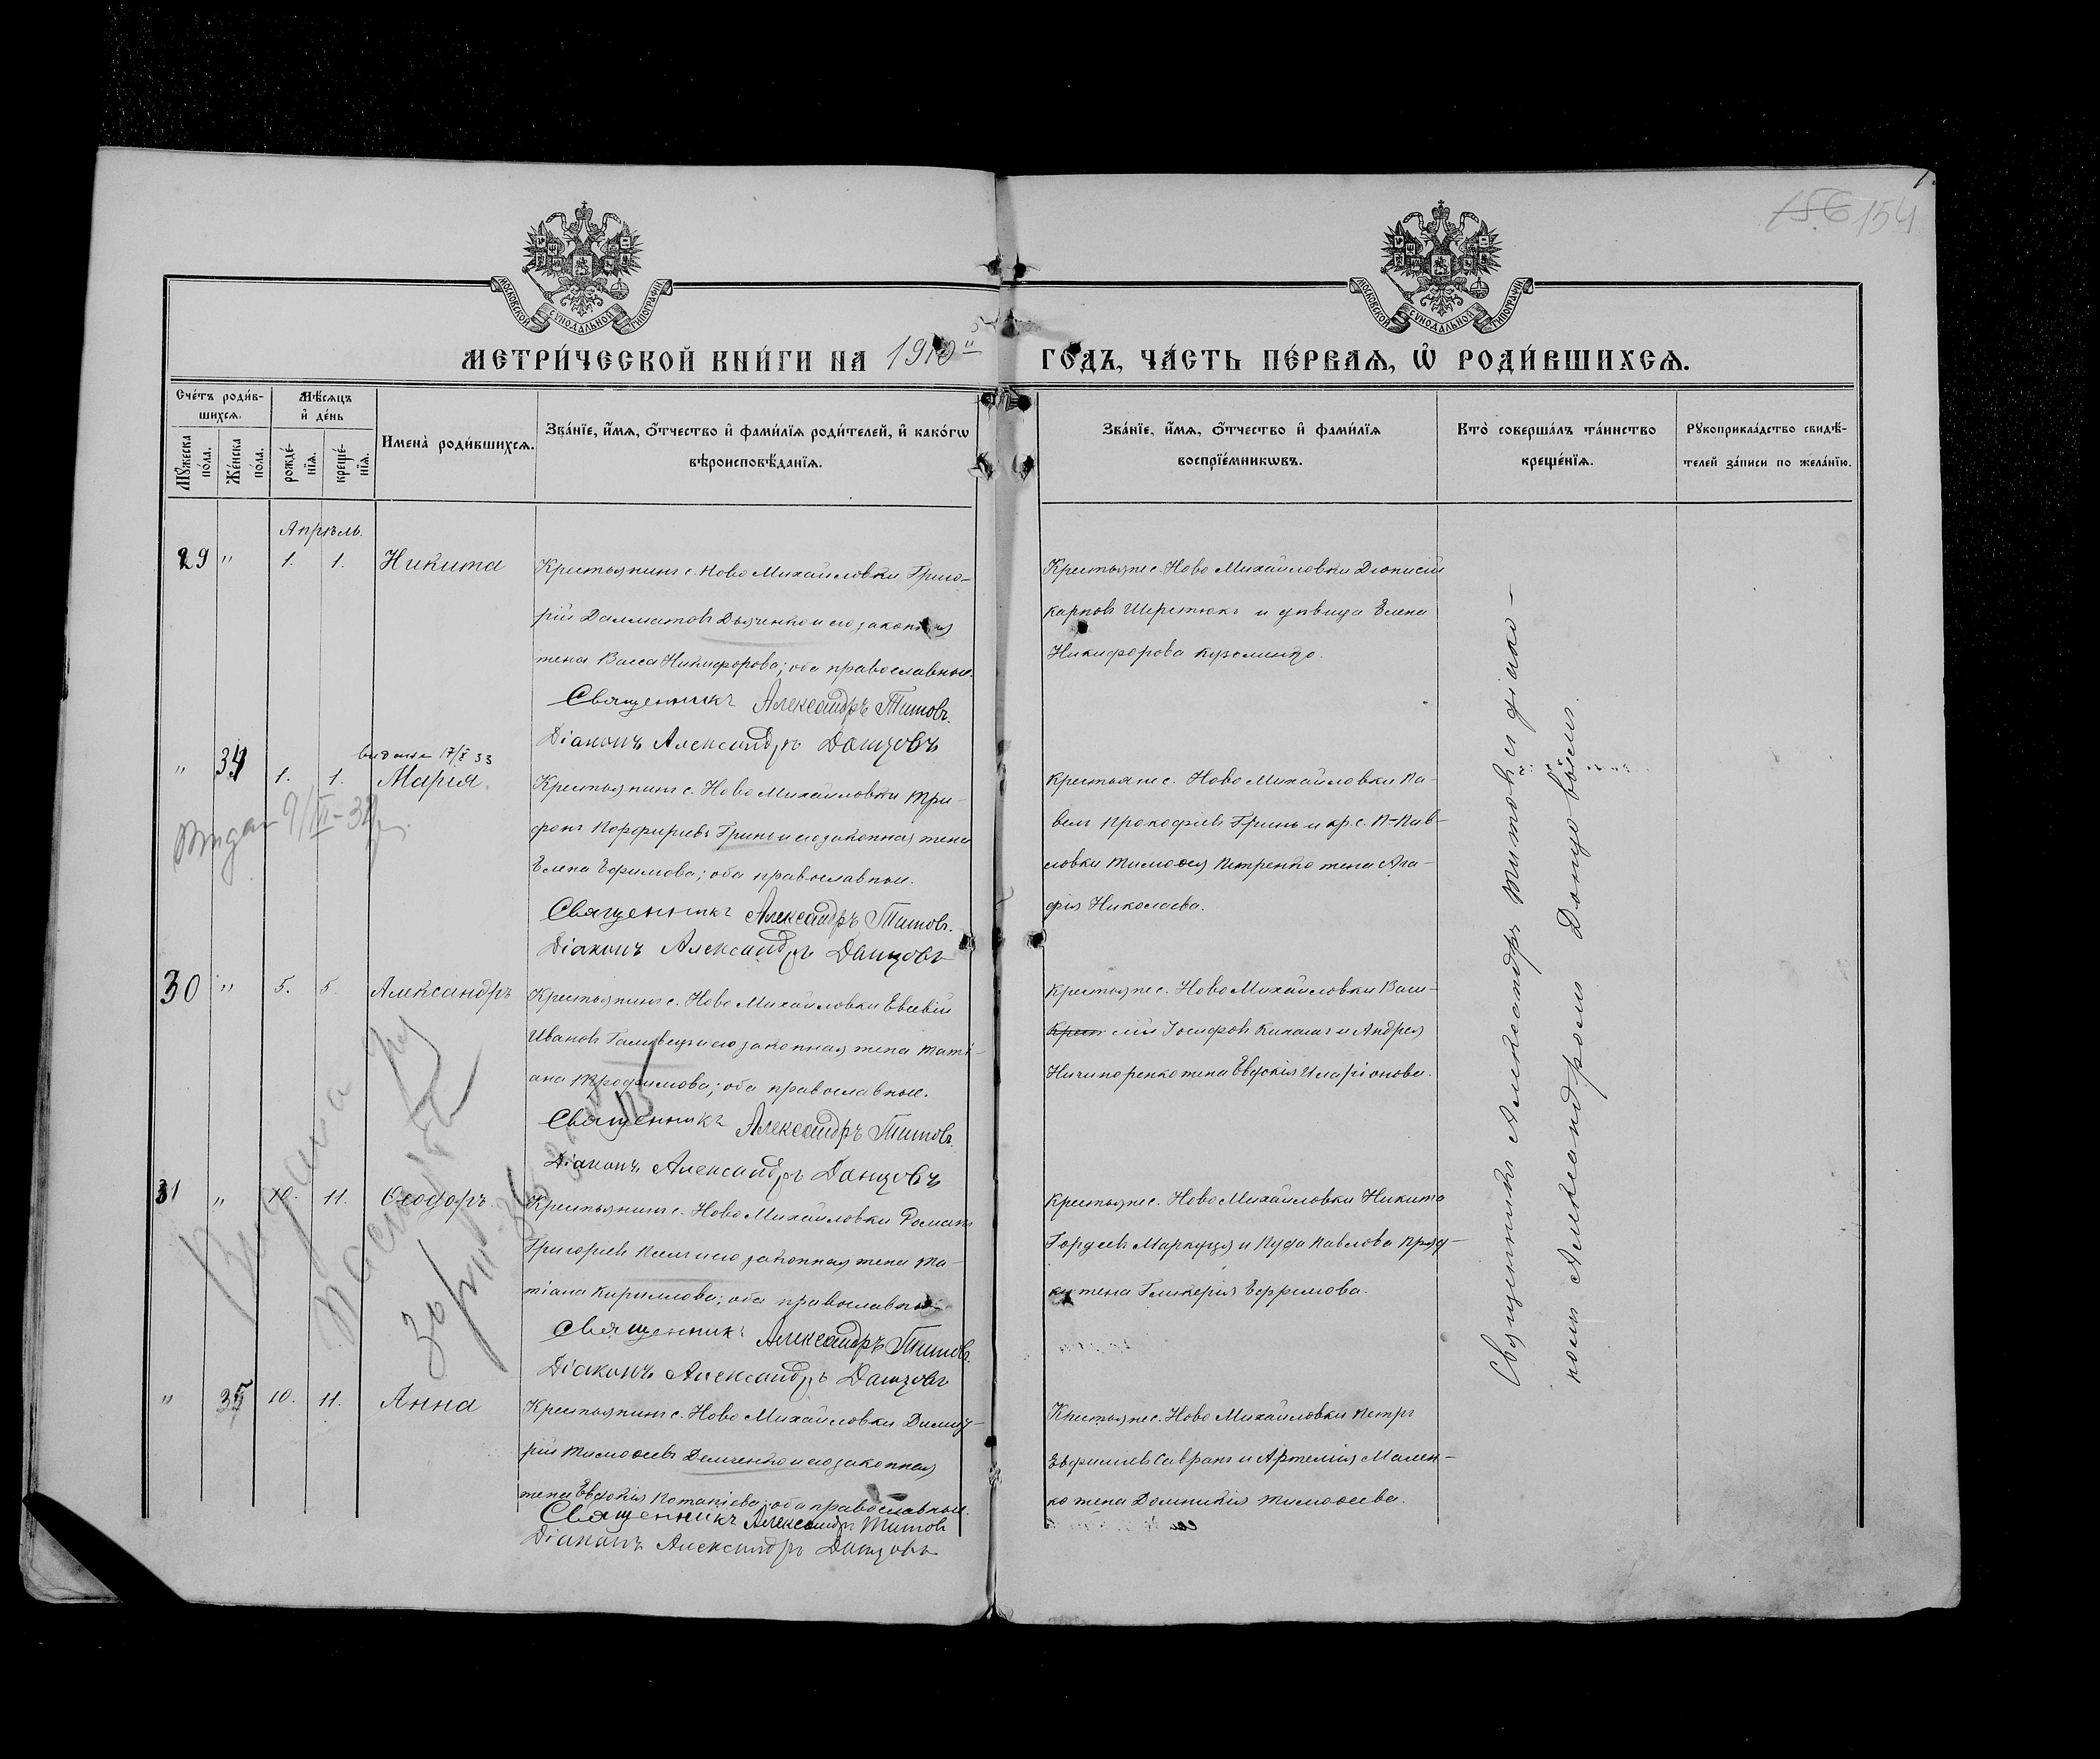 156 154
МОСКОВСКОЙ СѴНОДАЛЬНОЙ ТИПОГРАФІИ
МОСКОВСКОЙ СѴНОДАЛЬНОЙ ТИПОГРАФІИ
МЕТРИ́ЧЕСКОЙ КНИ́ГИ НА 1910 й ГОДЪ, ЧА́СТЬ ПЕ́РВАѦ, Ѽ РОДИ́ВШИХСѦ.
Сче́тъ роди́в-
шихсѧ.
Мꙋжеска по́ла.
Же́нска по́ла.
Мѣ́сѧцъ
и҆ де́нь
рожде́-
нїѧ.
креще́-
нїѧ.
Имена̀ роди́вшихсѧ.
Зва́нїе, и҆́мѧ, ѻ҆́тчество и҆ фами́лїѧ роди́телей, и҆ како́гѡ
вѣроисповѣ́данїѧ.
Зва́нїе, и҆́мѧ, ѻ҆́тчество и҆ фами́лїѧ
воспрїе́мникѡвъ.
Кто̀ соверша́лъ та́инство
креще́нїѧ.
Рꙋкоприкла́дство свидѣ́-
телей за́писи по жела́нїю.
Апрѣль.
29 " 1. 1. Никита
Крестьянинъ с. Ново Михайловки Григо-
рій Далматовъ Дьяченко и его законная
жена Васса Никифорова; оба православные.
Священникъ Александръ Титовъ.
Діаконъ Александръ Данцовъ
Крестьяне с. Ново Михайловки Діонисій
Карповъ Шерстюкъ и дѣвица Елена
Никифорова Кузоменко.
видана 17/X 33
" 34 1. 1. Марія.
9/VI-34
Крестьянинъ с. Ново Михайловки Три-
фонъ Порфирьевъ Гринь и его законная жена
Елена Ефимова; оба православные.
Священникъ Александръ Титовъ.
Діаконъ Александръ Данцовъ
Крестьяне с. Ново Михайловки Па-
велъ Прокофіевъ Гринь и кр. с. Н-Пав-
ловки Тимофея Петренко жена Ага-
фія Николаева.
30 " 5. 5. Александръ
Крестьянинъ с. Ново Михайловки Евсевій
Ивановъ и его законная жена Тати-
ана Трофимова; оба православные.
Священникъ Александръ Титовъ.
Діаконъ Александръ Данцовъ
Крестьяне с. Ново Михайловки Васи-
Крест лій Іосифовъ и Андрея
Ничипоренко жена Евдокія Иларіонова.
Видана
31 " 10. 11. Ѳеодоръ.
Крестьянинъ с. Ново Михайловки Романъ
Григоріевъ и его законная жена Та-
тіана Кириллова; оба православные
Священникъ Александръ Титовъ.
Діаконъ Александръ Данцовъ
Крестьяне с. Ново Михайловки Никита
Гордѣевъ и Павлова
жена Гликерія Ефремова.
" 35 10. 11. Анна
Крестьянинъ с. Ново Михайловки Димит-
рій Тимоѳеевъ Демченко и его законная
жена Евдокія Потапіева; оба православные.
Священникъ Александръ Титовъ
Діаконъ Александръ Данцовъ
Крестьяне с. Ново Михайловки Петръ
Евфиміевъ Савранъ и Артемія Мален-
ко жена Домникія Тимоѳеева.
Священникъ Александръ Титовъ съ діако-
номъ Александромъ Данцовымъ.